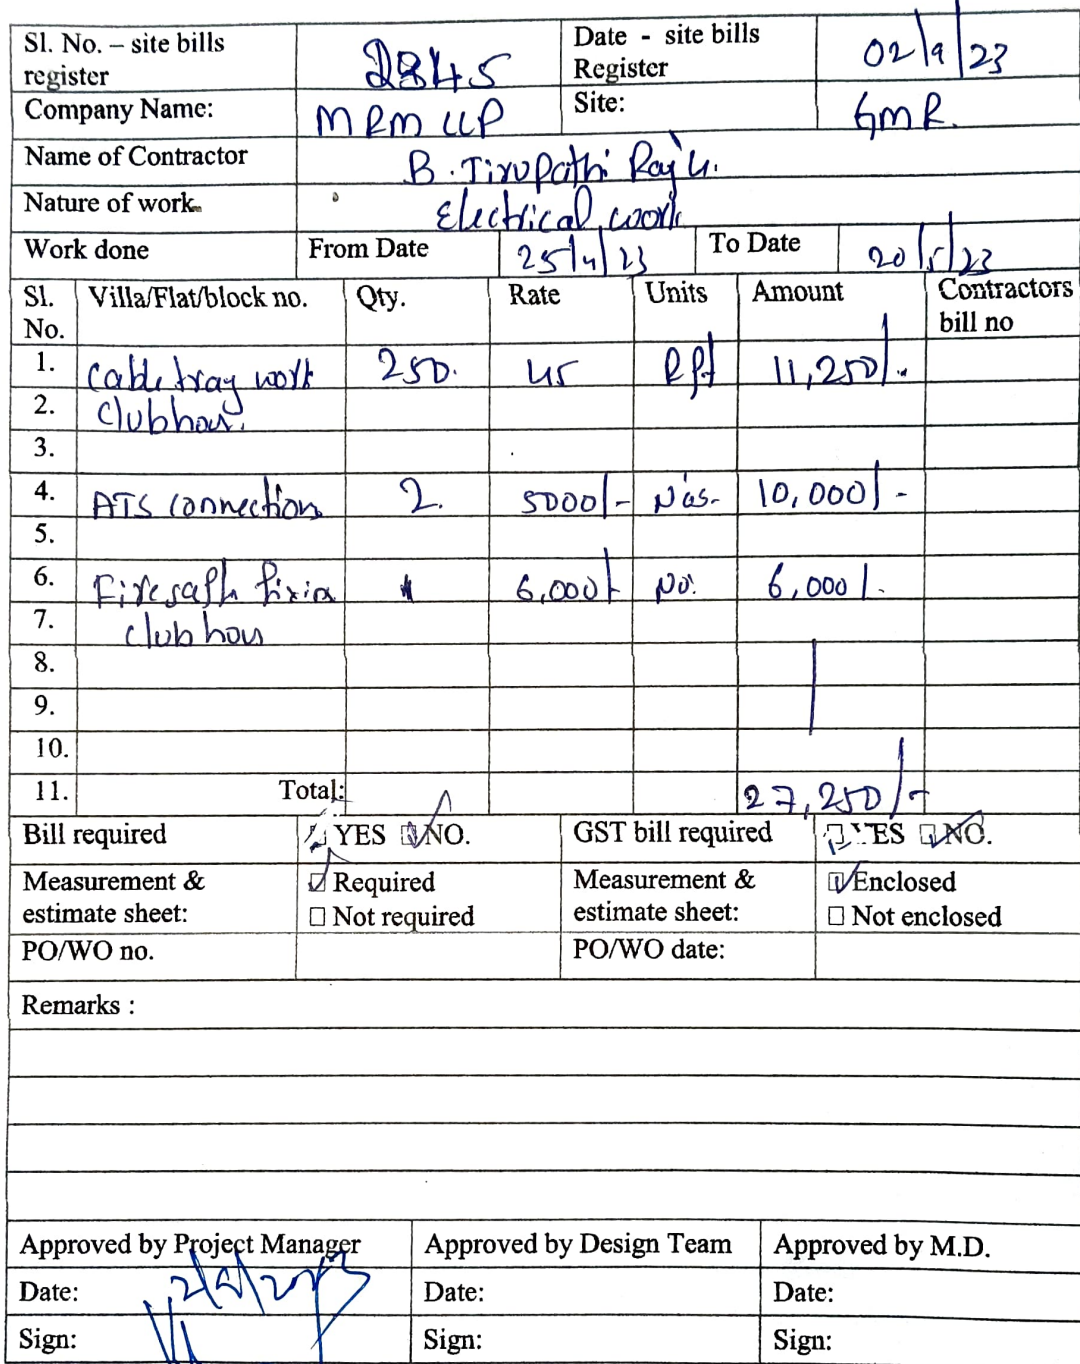 Sl. No. – site bills register 2845 Date - site bills Register 02/9/23
Company Name: MRM LLP Site: GMR.
Name of Contractor B. Tirupathi Raju.
Nature of work Electrical work
Work done From Date 25/4/23 To Date 20/5/23
Sl. No. Villa/Flat/block no. Qty. Rate Units Amount Contractors bill no
1. Cable tray work 250. 45 Rft 11,250/-
2. Clubhous.
3.
4. ATS Connection 2. 5000/- Nos- 10,000/-
5.
6. Firesafh fixin 6,000/- No. 6,000/-
7. club hous
8.
9.
10.
11. Total: 27,250/-
Bill required YES NO. GST bill required YES NO.
Measurement & estimate sheet: Required Measurement & estimate sheet: Enclosed
Not required Not enclosed
PO/WO no. PO/WO date:
Remarks :
Approved by Project Manager Approved by Design Team Approved by M.D.
Date: Date: Date:
Sign: Sign: Sign: